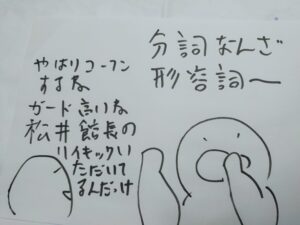 分詞なんざ
形容詞〜
やはりコーフン
するな
ガード高いな
松井館長の
ハイキックい
ただいて
るんだっけ